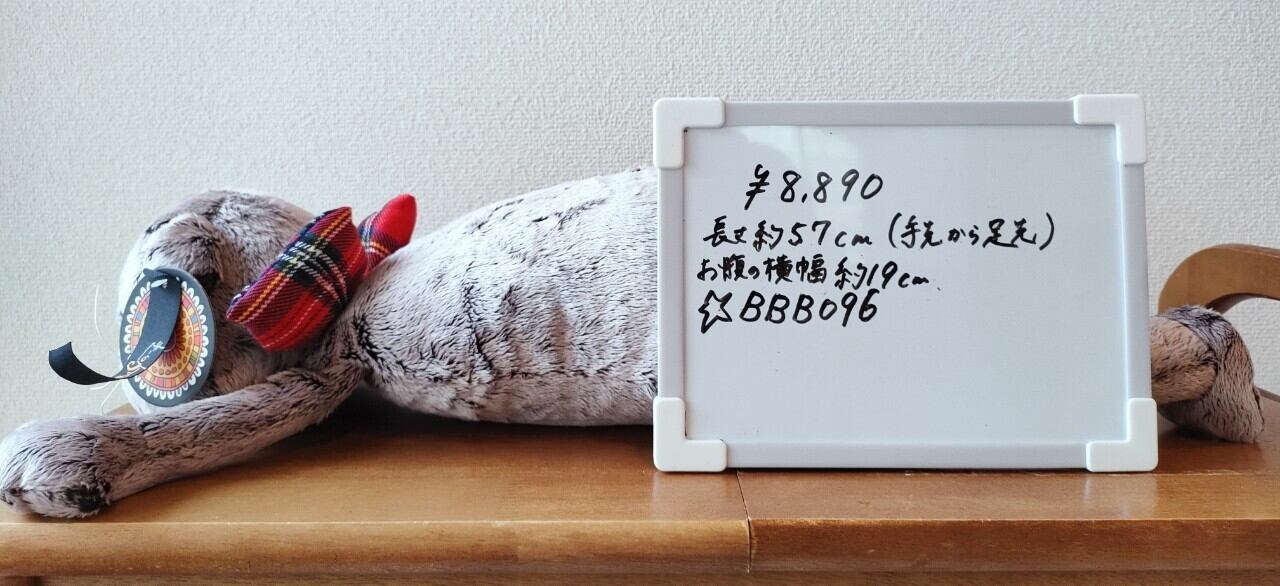 ¥8,890
長さ約57cm(手先から足先)
お腹の横幅約19cm
☆BBB096